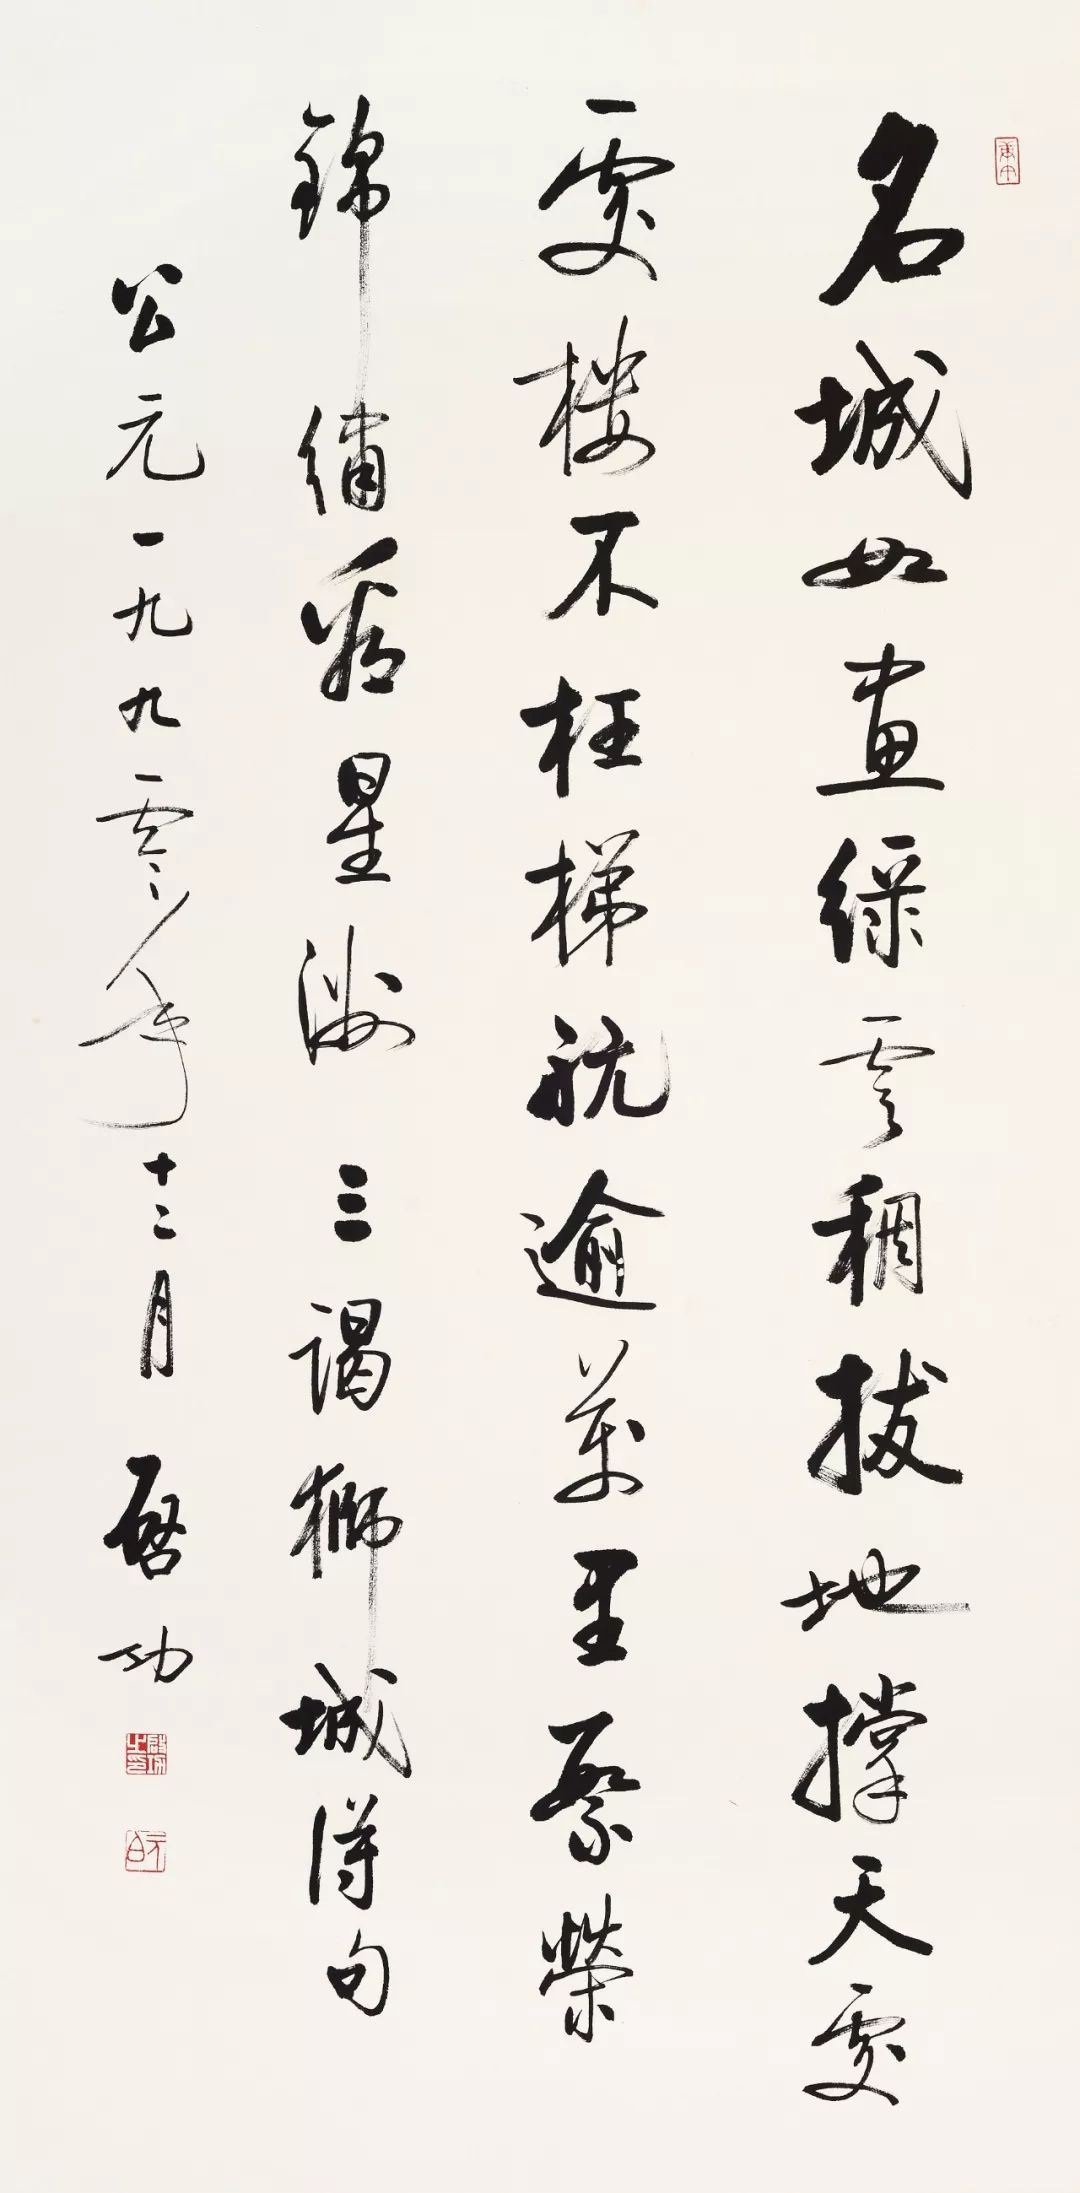 名城如畫綠雲稠拔地撐天處
處樓不枉梯航逾萬里繁榮
錦繡看星洲 三謁獅城得句
公元一九九零年十二月 啓功
啟功之印
元白